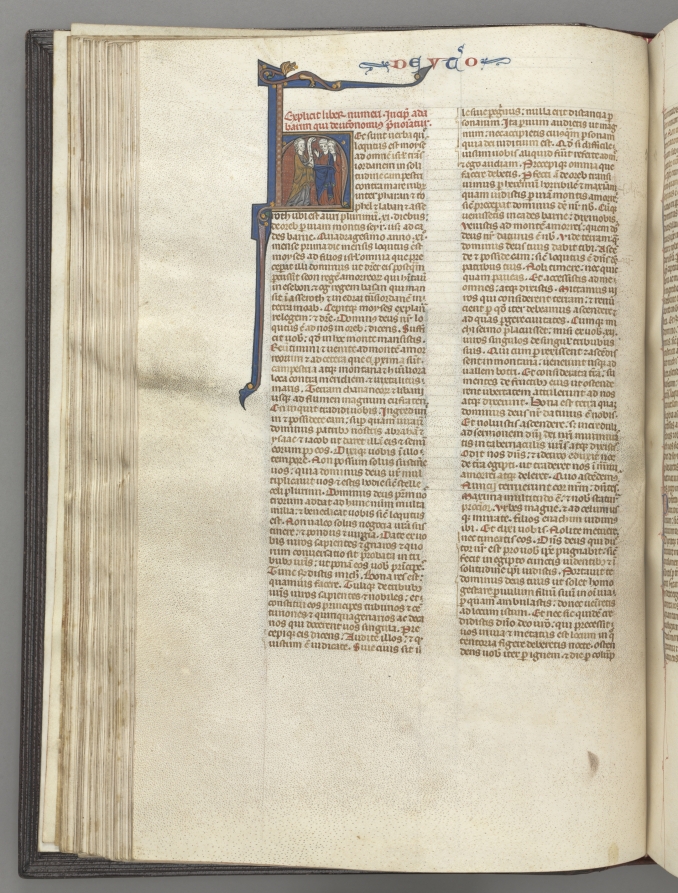 DEUTO
Explicit liber numeri. Incip ada
barim qui deutonomius pnotatur.
ec sunt verba qu
locutus est moyse
ad omne isrl trans
iordanem in soli
tudine campestri
contra mare rubr
inter pharan et
thophel et laban et ase
roth ubi est auri plurimum. xi. diebus
de oreb p viam montis seyr usq ad ca
des barne. Quadragesimo anno. xi.
mense prima die mensis locutus est
moyses ad filios isrl omnia que pre
cepat illi dominus ut diceret eis postqm
pcussit seon regem amorreor qui habitauit
in esebon et og regem basan qui man
sit in aseroth et in edrai trans iordane in
terra moab. Cepitq moyses explanare
legem et dicere. Dominus deus nr lo
cutus est ad nos in oreb dicens. Suffi
cit uob qd in hoc monte mansistis.
Reuertimini et uenite ad monte amor
reorum et ad cetera que ei proxima sunt
campestria atq montana et humiliora
loca contra meridiem et iuxta litus
maris. Terram chananeor et libani
usq ad flumen magnum eufraten.
En inquit tradidi uobis. Ingredimi
ni et possidete eam sup quam iurauit
dominus patribus nostris abraham
ysaac et iacob ut daret illam eis et semini
eorum post eos. Dixiq uobis illo
tempore. Non possum solus sustinere
uos quia dominus deus ur mul
tiplicauit uos et estis hodie sic stelle
celi plurimi. Dominus deus patrum uo
strorum addat ad hunc numerum multa
milia et benedicat uobis sic locutus
est. Non ualeo solus negocia ura sus
tinere et pondus et iurgia. Date ex uo
bis uiros sapientes et gnaros et quo
rum conuersatio sit probata in tri
bubus uris ut ponam eos uob principes.
Tunc respondistis michi. Bona res est
quam uis facere. Tuliq de tribubus
uris uiros sapientes et nobiles et
constitui eos principes tribunos et cen
turiones et quinquagenarios ac deca
nos qui docerent uos singula. Pre
cepiq eis dicens. Audite illos et q
iustum est iudicate. Siue ciuis sit il
le siue peregrinus nulla erit distancia p
sonarum. Ita paruum audietis ut mag
num nec accipietis cuiusqm personam
quia dei iudicium est. Qd si difficile
uisum uobis aliquid fuerit referte ad me
et ego audiam. Precepiq omnia que
facere deberetis. Profecti aut de oreb transi
uimus p heremum terribilem et maximam
quam uidistis p uiam montis amorrei
sic preceperat dominus deus nr nobis. Cumq
uenissemus in cades barne dixi uobis
Venistis ad montem amorrei quem do
minus deus nr daturus est nob. Vide terram quam
dominus deus tuus dabit tibi. Ascen
de et posside eam sic locutus est dns deus
patribus tuis. Noli timere nec quic
quam paueas. Et accessistis ad me
omnes atq dixistis. Mittamus ui
ros qui considerent terram et renun
cient p qd iter debeamus ascendere
et ad quas pergere ciuitates. Cumq mi
chi sermo placuisset misi ex uob xii
uiros singulos de singulis tribubus
suis. Qui cum perrexissent et ascendis
sent in montana uenerunt usq ad
uallem botri. Et considerata terra su
mentes de fructibus eius ut ostende
rent ubertatem attulerunt ad nos
atq dixerunt. Bona est terra quam
dominus deus nr daturus est nobis.
Et noluistis ascendere sed increduli
ad sermonem dni dei nri murmura
tis in tabernaculis uris atq dixistis
Odit nos dns et idcirco eduxit nos
de terra egypti ut traderet nos in manu
amorrei atq deleret. Quo ascendemus
Nuncii terruerunt cor nrm dicentes.
Maxima multitudo est et nob statura
procerior. Vrbes magne et ad celum us
q munite. Filios enachim uidimus
ibi. Et dixi uobis. Nolite metuere
nec timeatis eos. Dns deus qui duc
tor ur est pro uob ipse pugnabit sic
fecit in egypto cunctis uidentibus et
solitudine ipsi uidistis. Portauit te
dominus deus tuus ut solet homo
gestare paruulum filium suum in omni uia
p quam ambulastis donec ueniretis
ad locum istum. Et nec sic quidem cre
didistis dno deo uro qui precessit
uos in uia et metatus est locum in quo
tentoria figere deberetis nocte osten
dens uob iter p ignem et die p columpna